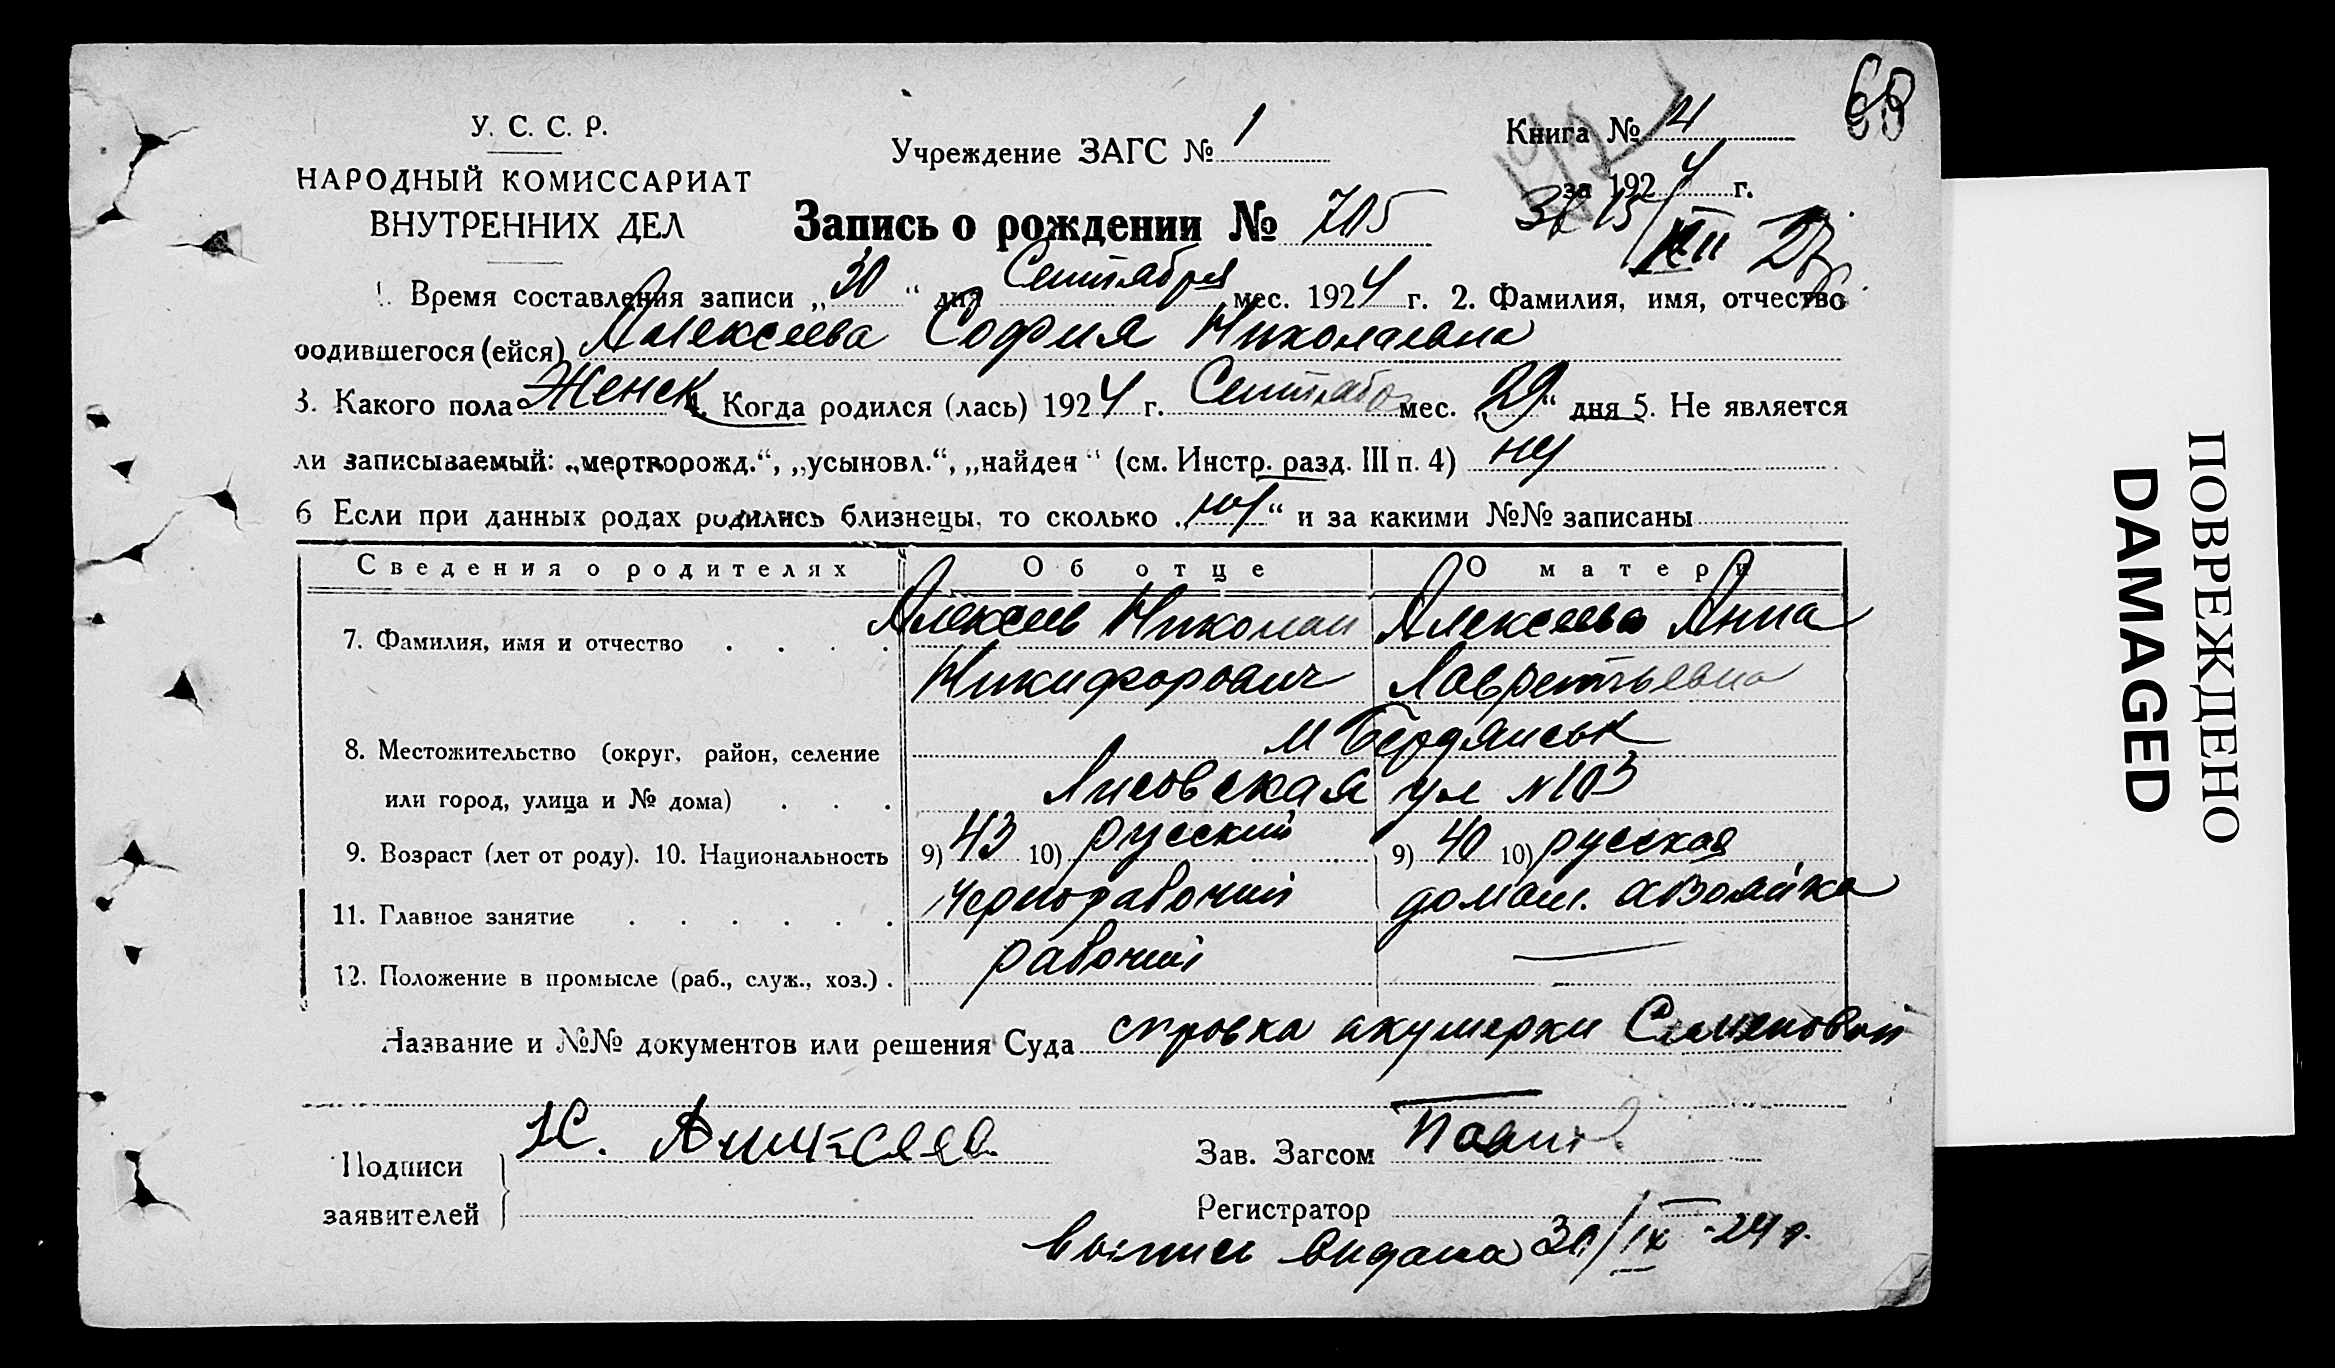 68
У. С. С. Р.
НАРОДНЫЙ КОМИССАРИАТ
ВНУТРЕННИХ ДЕЛ
Учреждение ЗАГС № 1
Книга № 4
за 1924 г.
Запись о рождении № 705
15/XII 27
1. Время составления записи „30“ дня Сентября мес. 1924 г. 2. Фамилия, имя, отчество
родившегося (ейся) Алексеева София Николаевна
3. Какого пола Женск 4. Когда родился (лась) 1924 г. Сентября мес. „29“ дня 5. Не является
ли записываемый: „мертворожд.“, „усыновл.“, „найден“ (см. Инстр. разд. III п. 4) нет
6 Если при данных родах родились близнецы, то сколько „нет“ и за какими №№ записаны
Сведения о родителях Об отце О матери
7. Фамилия, имя и отчество . . . . Алексеев Николай Алексеева Анна
Никифорович Лаврентьевна
8. Местожительство (округ, район, селение м Бердянськ
или город, улица и № дома) . . . Лисовская ул № 103
9. Возраст (лет от роду). 10. Национальность 9) 43 10) русский 9) 40 10) русская
11. Главное занятие . . . . . . Чернорабочий домаш. хозяйка
12. Положение в промысле (раб., служ., хоз.) . рабочий —
Название и №№ документов или решения Суда справка акушерки Семеновой
Подписи
заявителей
Н. Алексеев
Зав. Загсом
Регистратор
выпись видана 30/IX-24 г.
ПОВРЕЖДЕНО
DAMAGED